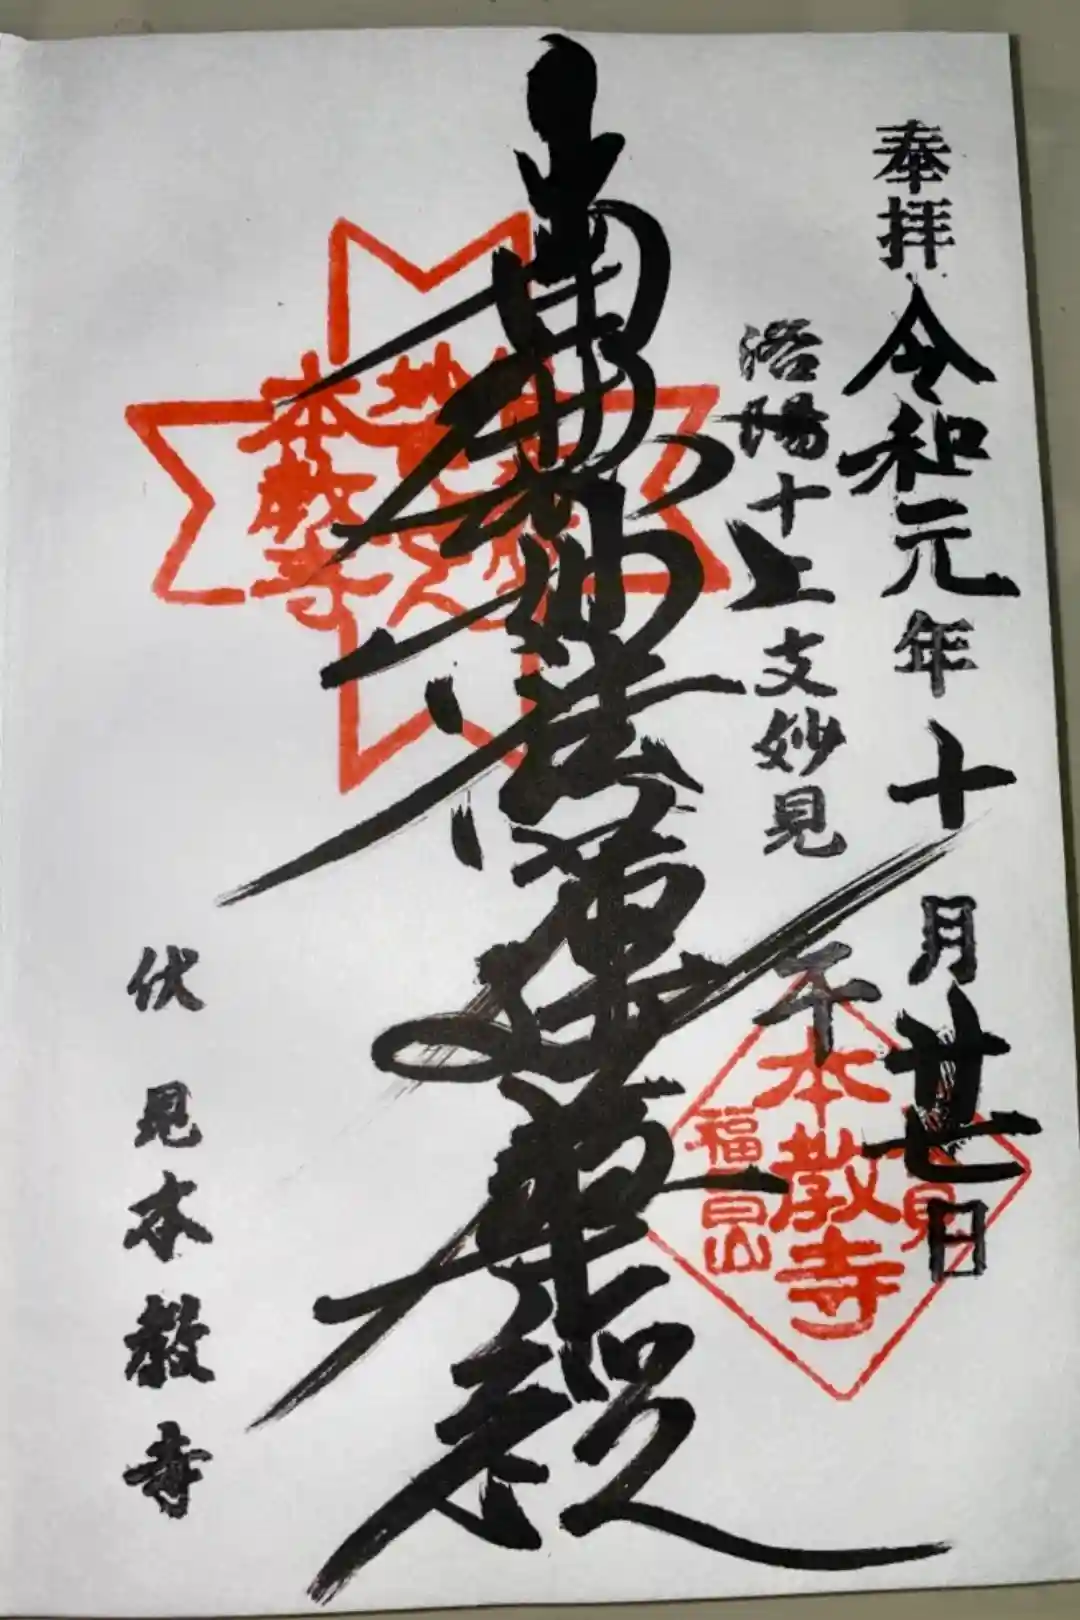 奉拝 令和元年十月廿七日
洛陽十二支妙見 午
南無妙法蓮華経
伏見本教寺
本教寺
伏見
本教寺
福昌山